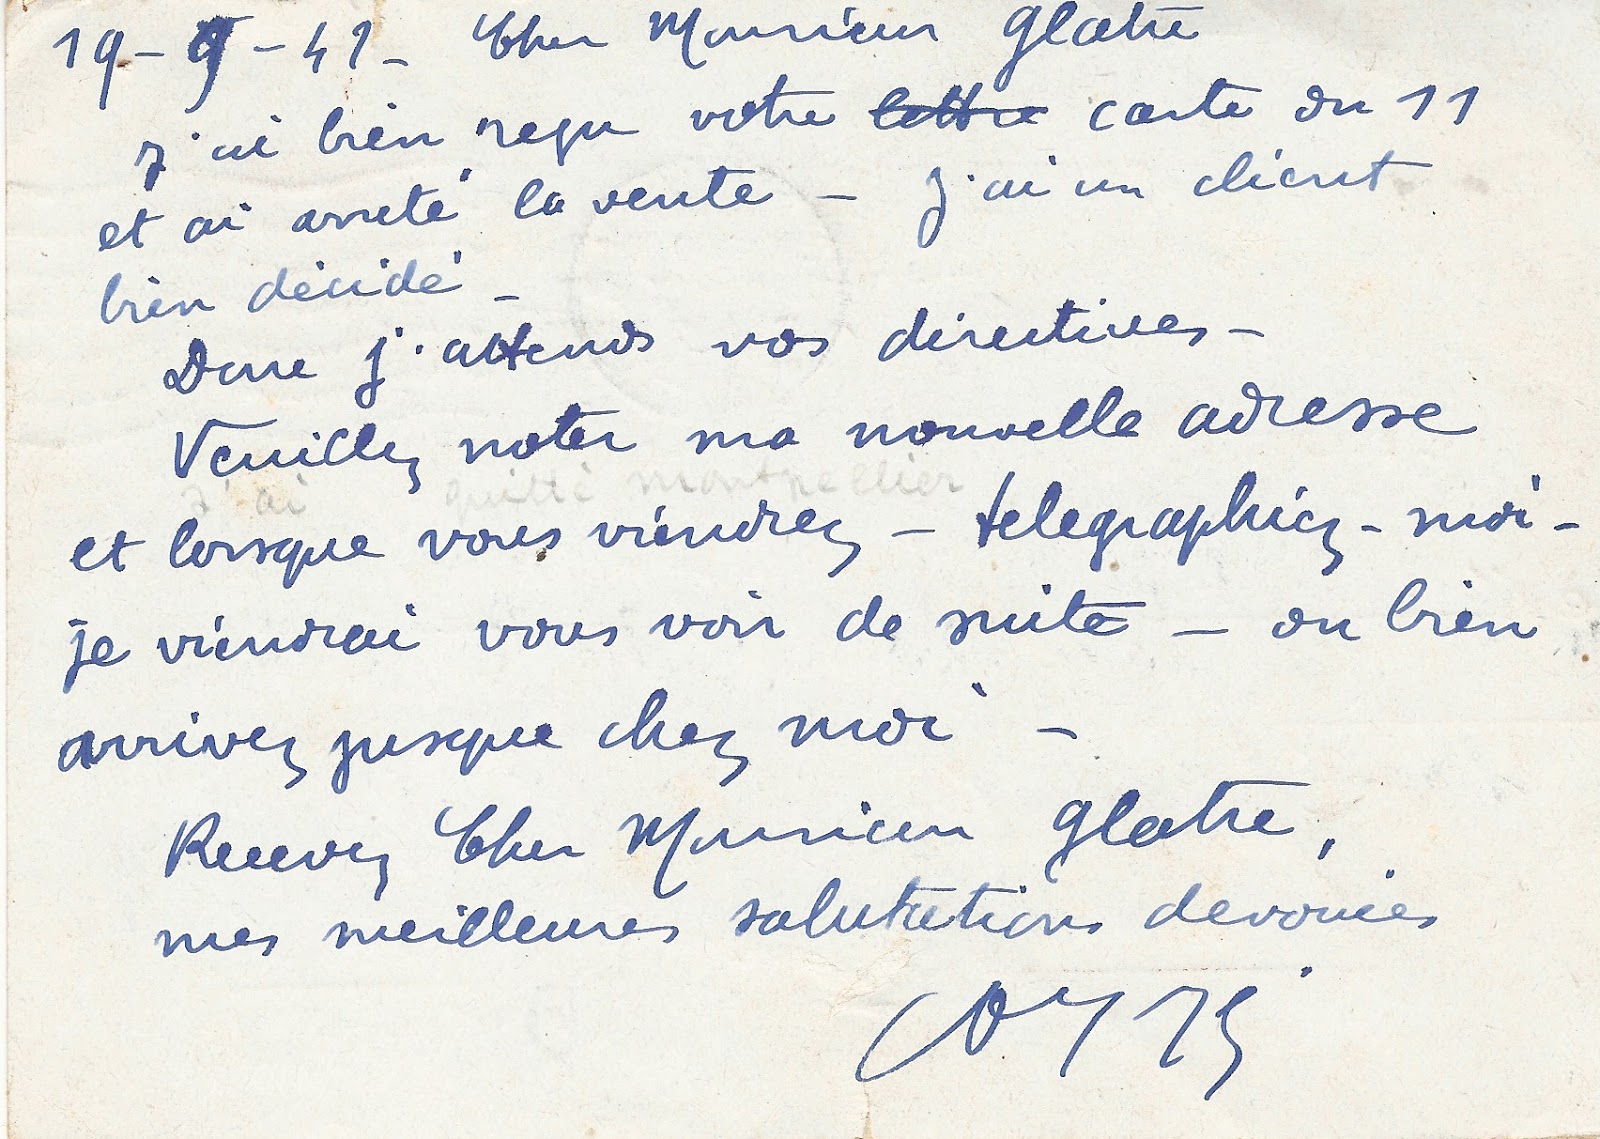 19-9-41- Cher Monsieur Glatre
J'ai bien reçu votre lettre carte du 11
et ai arreté la vente - J'ai un client
bien décidé -
Donc j'attends vos directives -
Veuillez noter ma nouvelle adresse
J'ai quitté montpellier
et lorsque vous viendrez - telegraphiez-moi -
je viendrai vous voir de suite - ou bien
arrivez jusque chez moi -
Recevez Cher Monsieur Glatre,
mes meilleures salutations devouées